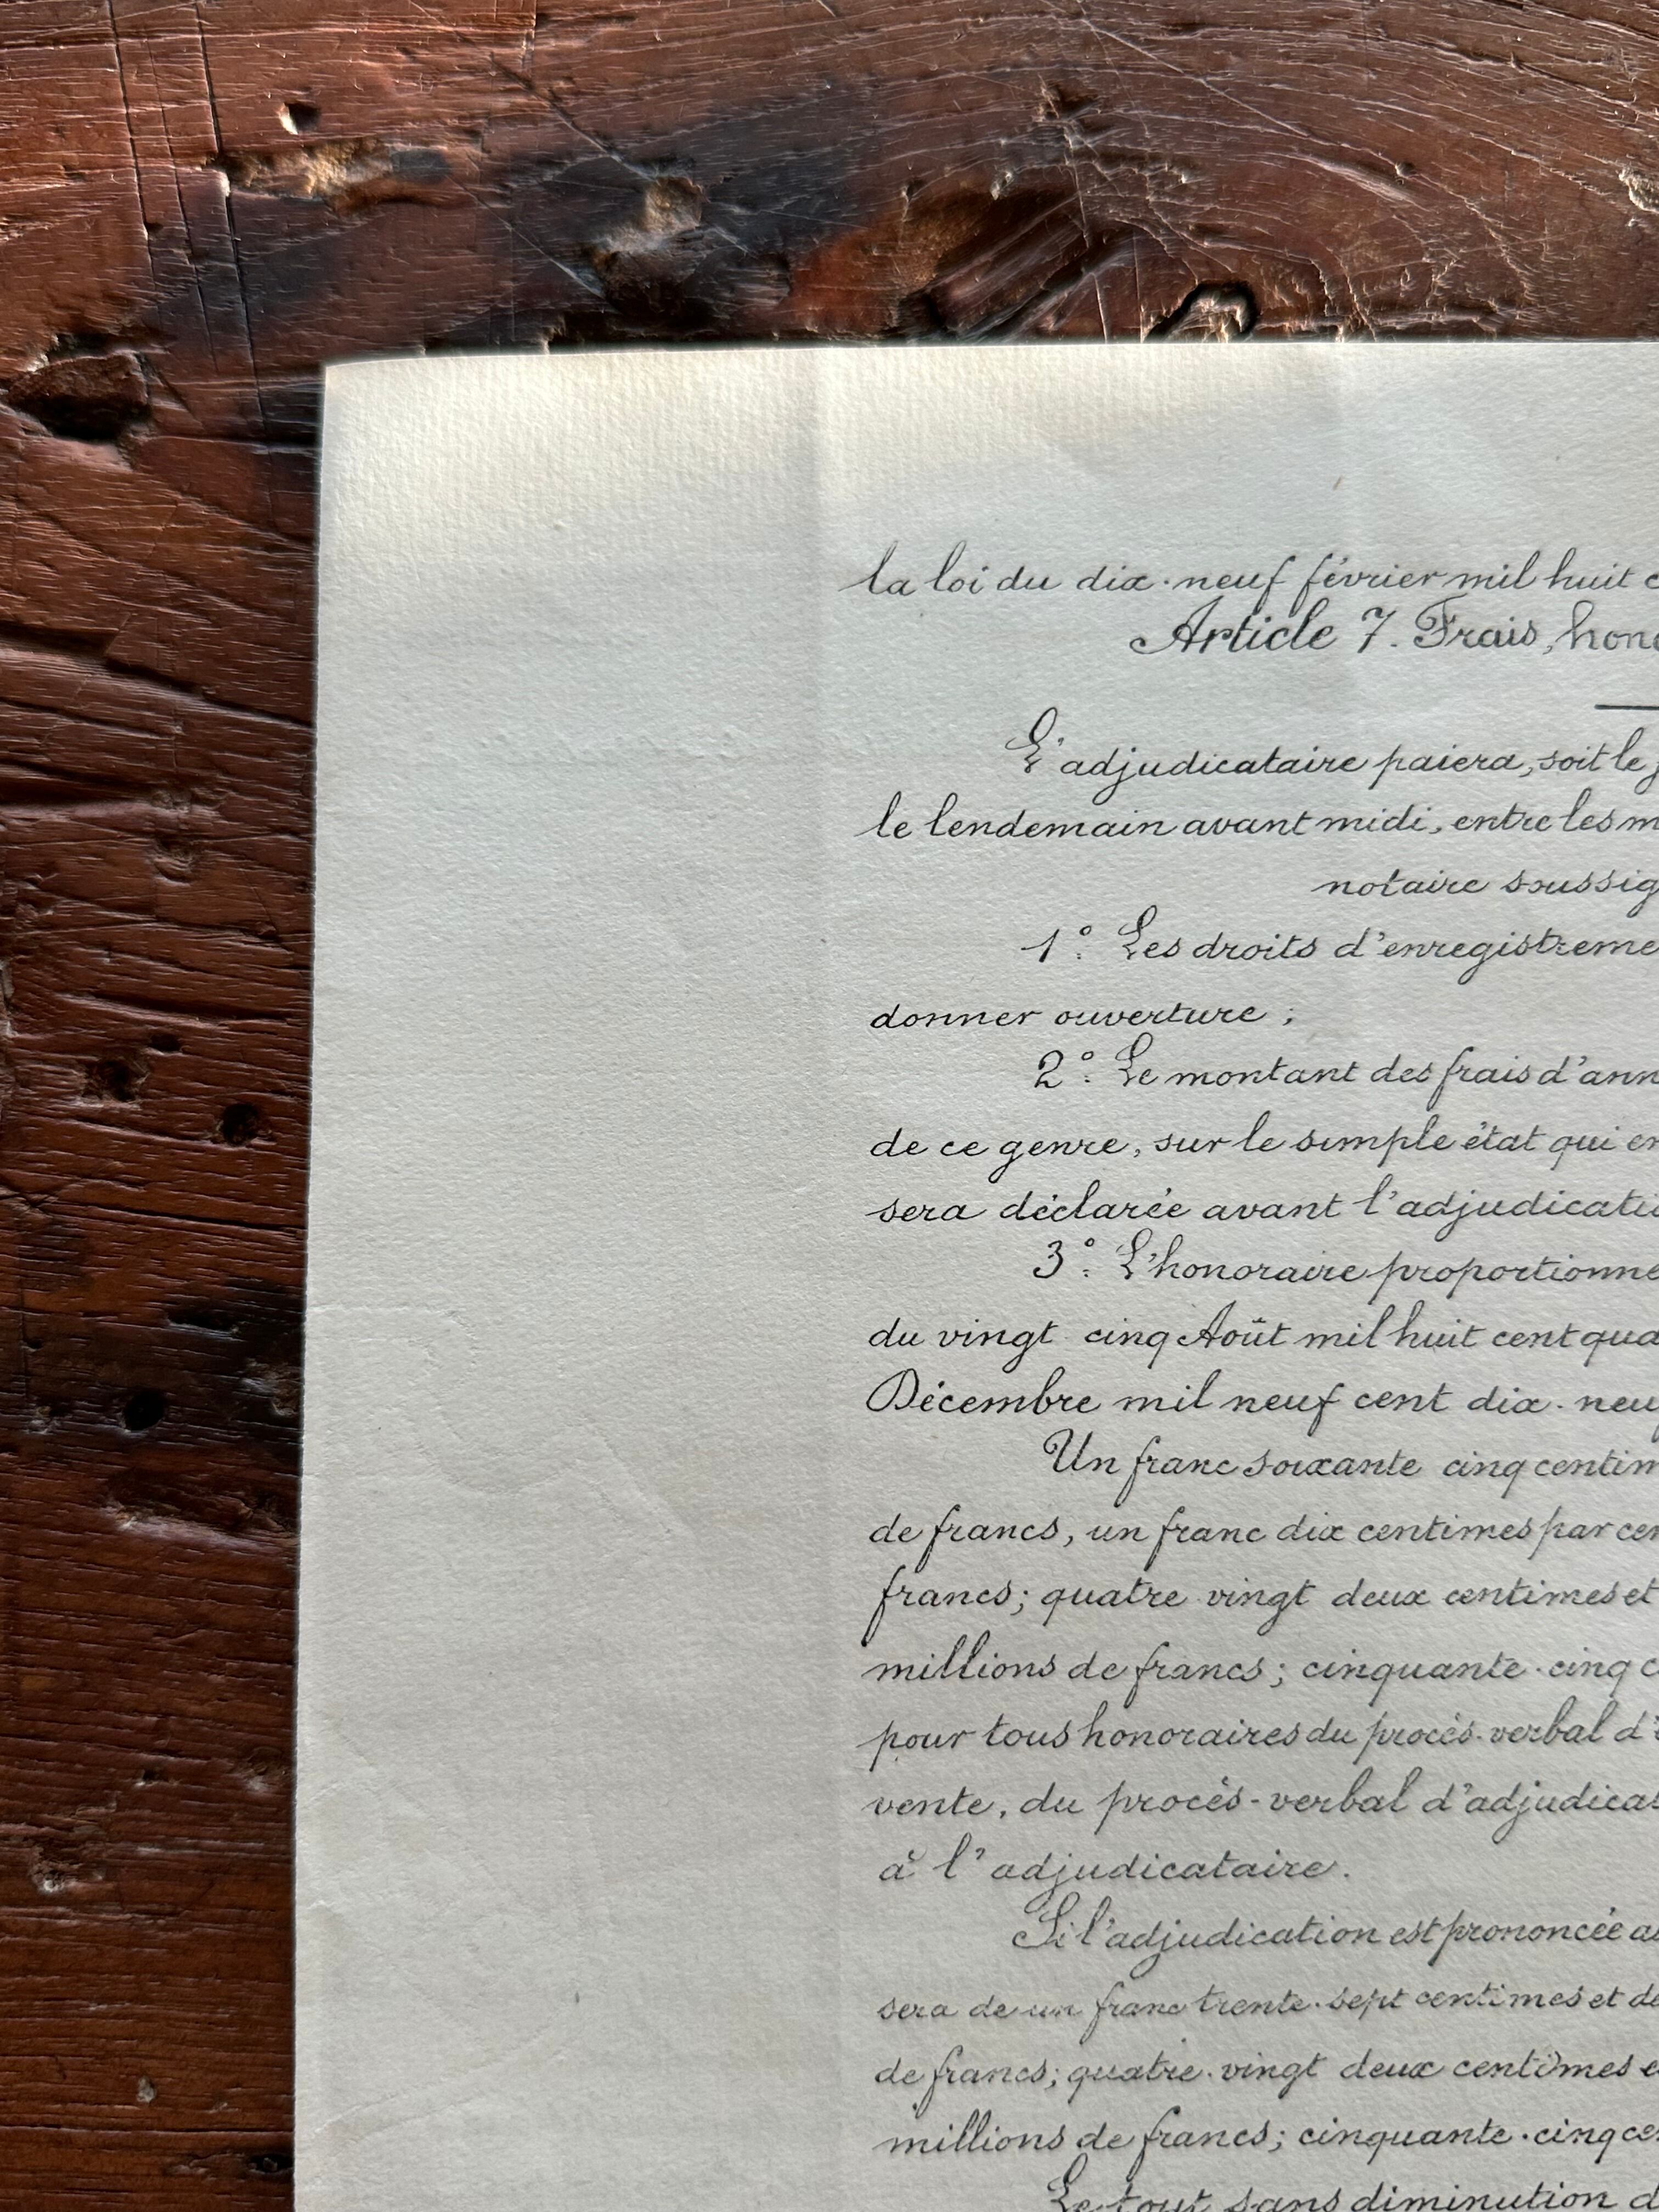 la loi du dix-neuf février mil huit c
Article 7. Frais, hono
L'adjudicataire paiera, soit le j
le lendemain avant midi, entre les m
notaire soussig
1°. Les droits d'enregistreme
donner ouverture ;
2°. Le montant des frais d'ann
de ce genre, sur le simple état qui en
sera déclarée avant l'adjudicati
3°. L'honoraire proportionne
du vingt cinq Août mil huit cent qua
Décembre mil neuf cent dix-neuf
Un franc soixante cinq centim
de francs, un franc dix centimes par cen
francs; quatre vingt deux centimes et
millions de francs; cinquante-cinq c
pour tous honoraires du procès-verbal d'
vente, du procès-verbal d'adjudicat
à l'adjudicataire.
Si l'adjudication est prononcée au
sera de un franc trente-sept centimes et de
de francs; quatre-vingt deux centimes e
millions de francs; cinquante-cinq ce
Le tout sans diminution d